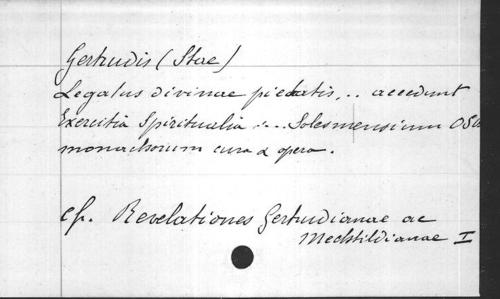 Gertrudis (Stae)
Legatus divinae pietatis, .. accedunt
Exercitia Spiritualia .... Solesmensium OSB
monachorum cura & opera.
cf. Revelationes Gertrudianae ac
Mechtildianae I